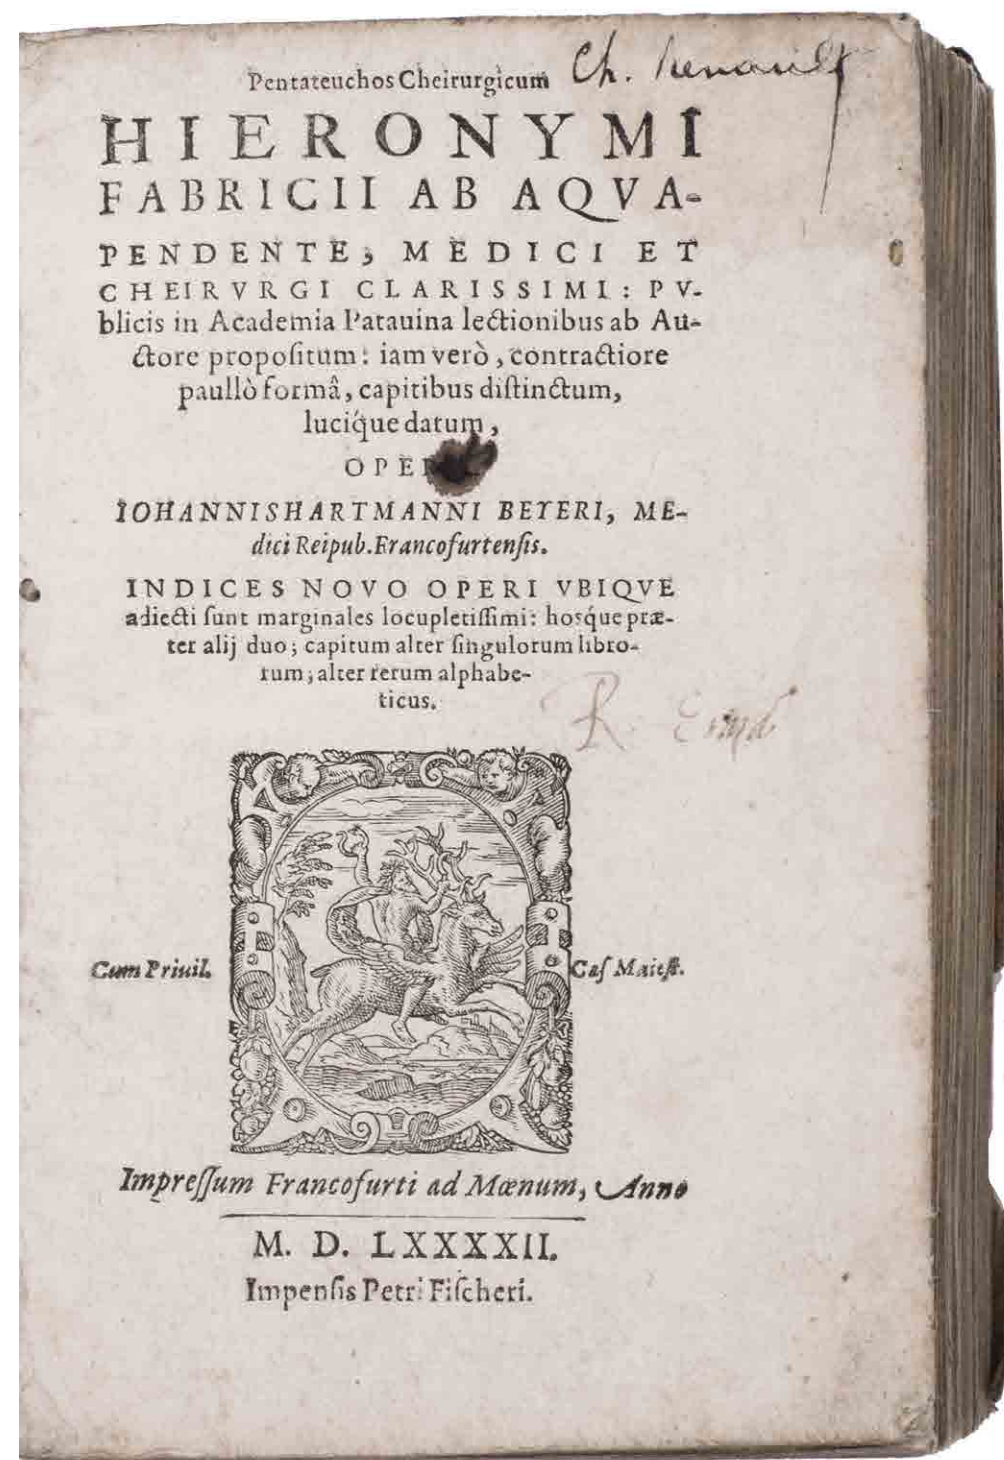 Pentateuchos Cheirurgicum
Ch. Renault
HIERONYMI
FABRICII AB AQVA-
PENDENTE, MEDICI ET
CHEIRVRGI CLARISSIMI: PV-
blicis in Academia Patauina lectionibus ab Au-
ctore propoſitum: iam verò, contractiore
paullò formâ, capitibus diſtinctum,
lucíque datum,
IOHANNIS HARTMANNI BEYERI, ME-
dici Reipub. Francofurtenſis.
INDICES NOVO OPERI VBIQVE
adiecti ſunt marginales locupletiſſimi: hosq́ue præ-
ter alij duo; capitum alter ſingulorum libro-
rum; alter rerum alphabe-
ticus.
Cum Priuil.
Cæſ Maieſt.
Impreſſum Francofurti ad Mœnum, Anno
M. D. LXXXXII.
Impenſis Petri Fiſcheri.